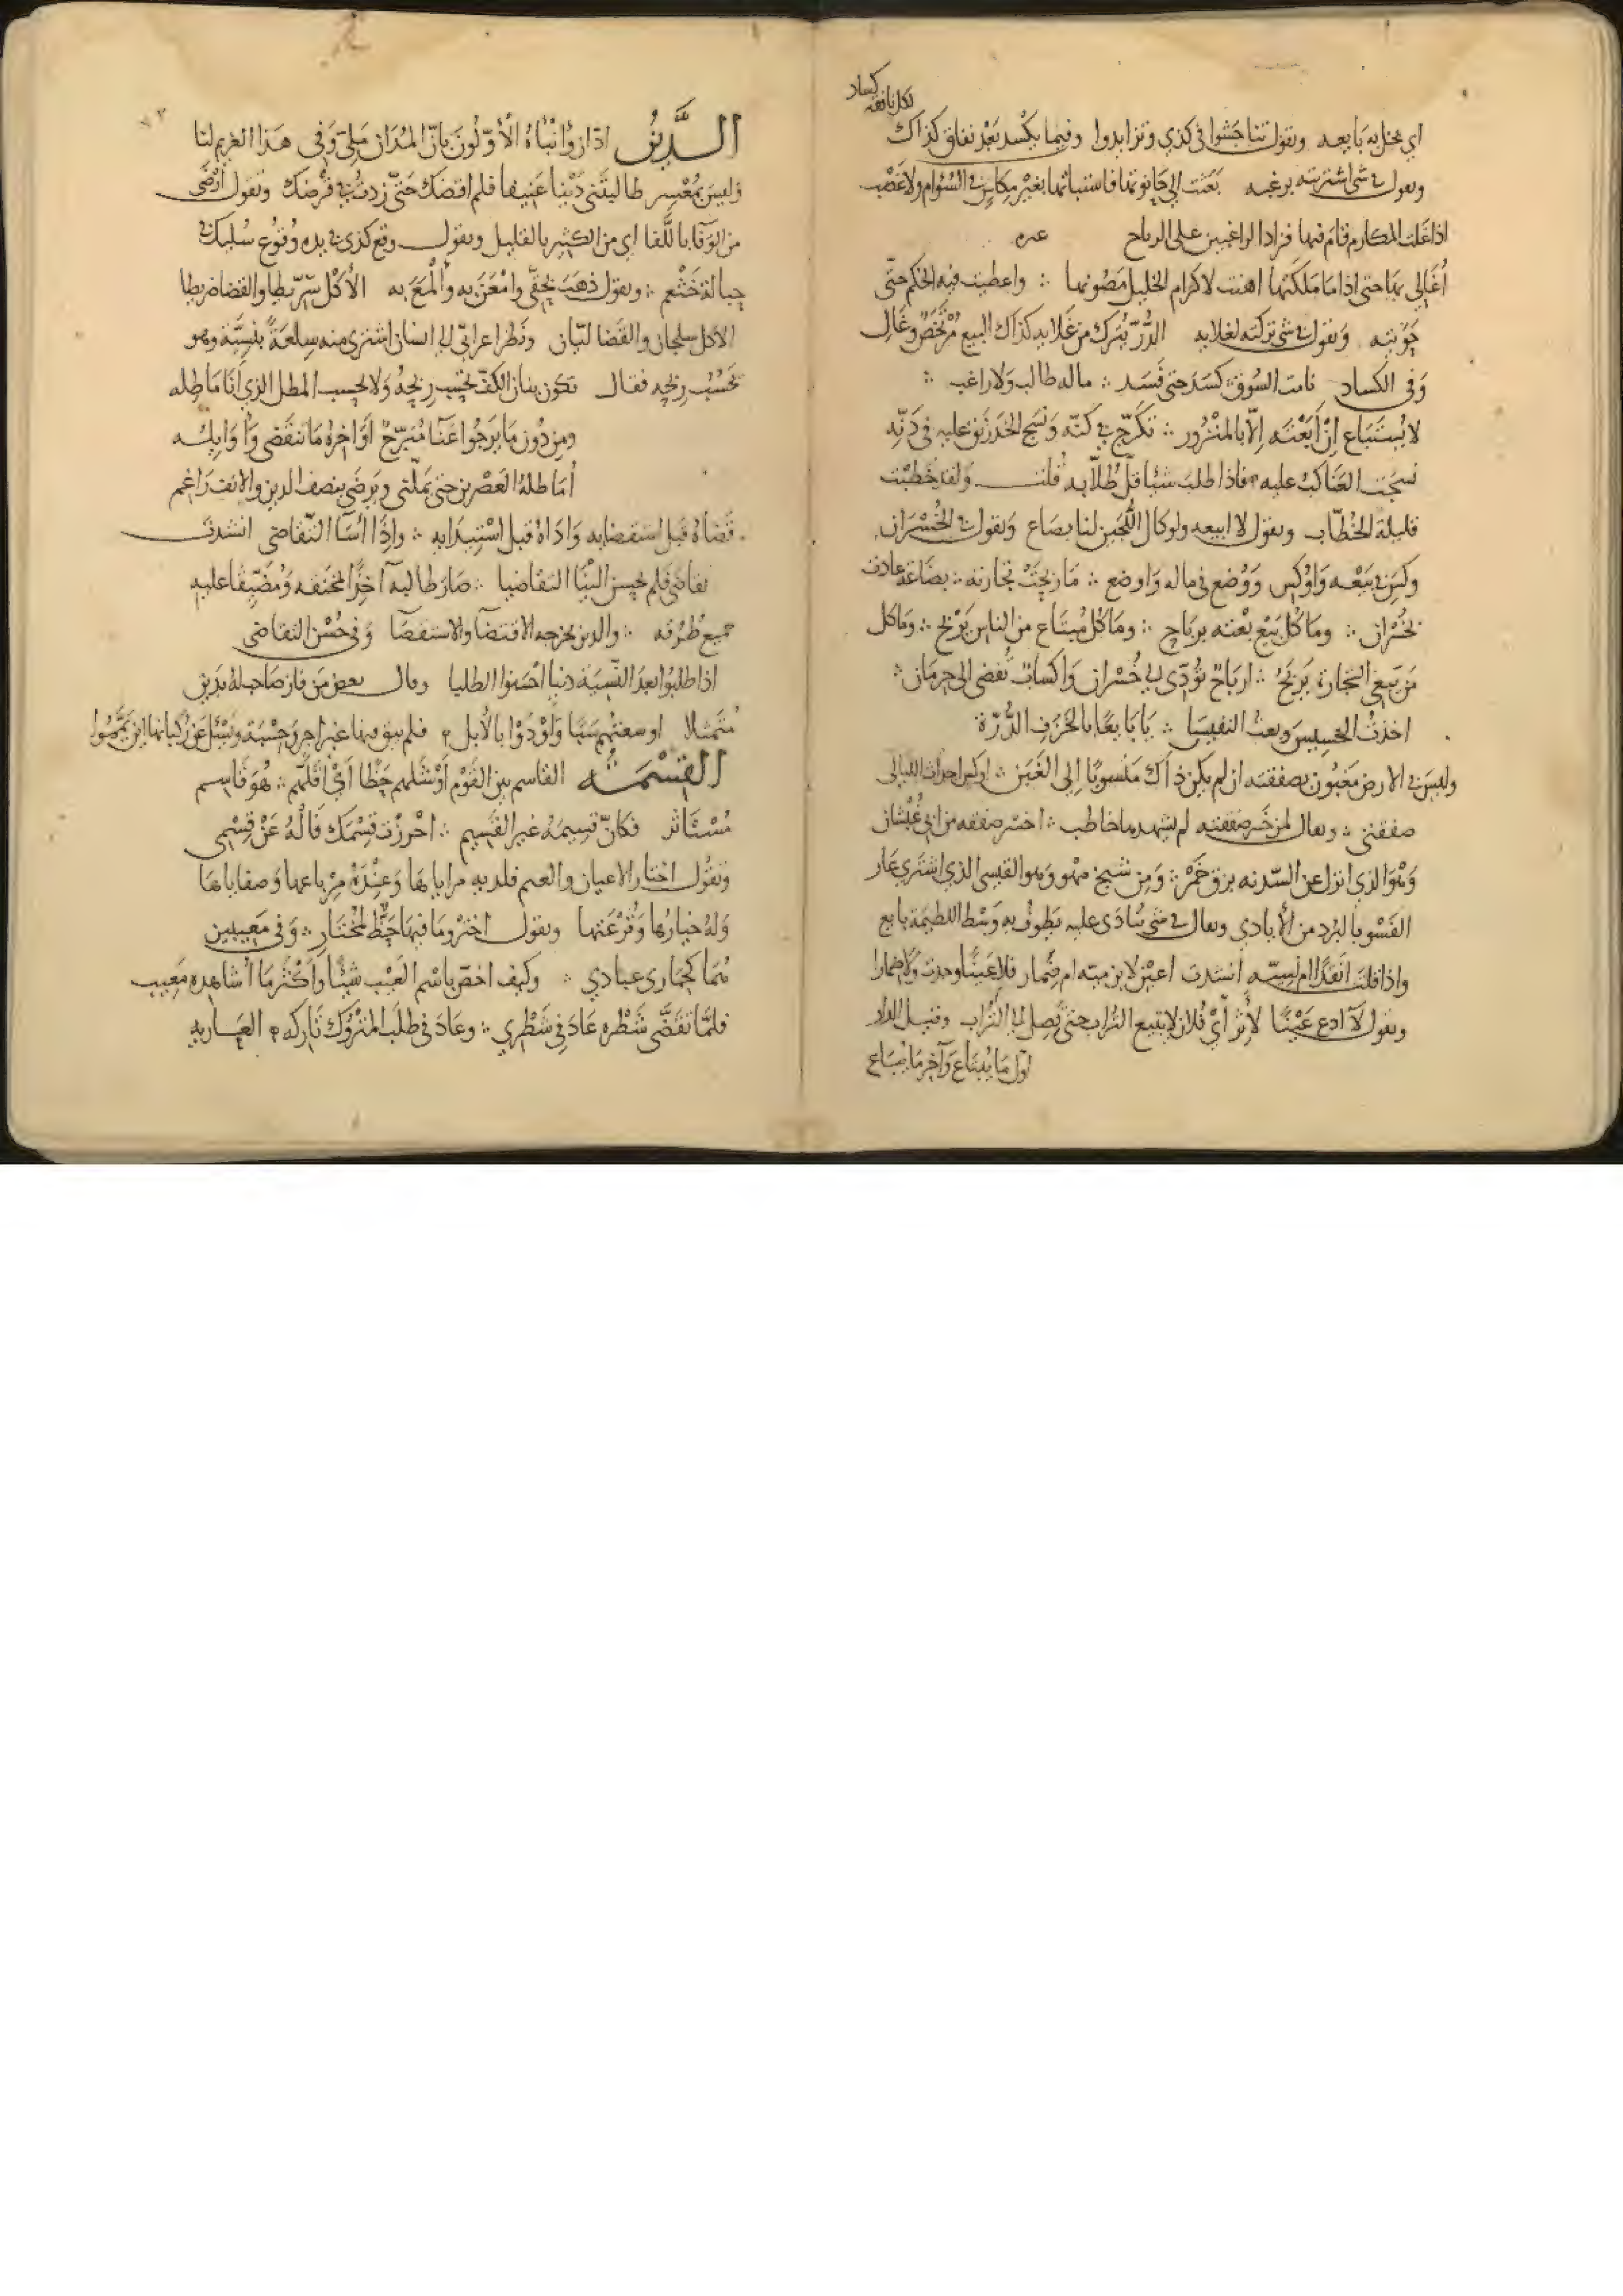 لكل نافقة كساد
اي يبخل به بايعه وتقول تناجشوا في كذي وتزايدوا وفيما يكسد بعد نفاق كذاك
وتقول في شي اشتريته برغبه بعثت الى حانوتها فاستباتها بغير مكاس في السوام ولا غصب
اذا غلت المكارم قام فيها فزاد الراغبين على الرباح غيره
أغالي بها حتى اذا ما ملكتها اهنت لاكرام الخليل مصونها واعطيت فيه الحكم حتى
حويته وتقول في شي تركته لغلايه الدر يترك من غلايه كذاك البيع مرتخص وغال
وفي الكساد نامت السوق كسد حتى فسد ماله طالب ولا راغب
لا يستباع إن أبعته إلا بالمنزور تكرج في كنه ونسج الخدرنق عليه في دنه
نسجت العناكب عليه فاذا طلب شيا قل طلابه قلت ولقد خطبت
قليلة الخطاب وتقول لا ابيعه ولو كال اللجين لنا بصاع وتقول في الخسران
وكس في بيعه واوكس ووضع في ماله واوضع ما ربحت تجارته بضاعة عادت
بخسران وما كل بيع بعته برباح وما كل مبتاع من الناس يربح وما كل
من يبغي التجارة يربح ارباح تؤدي الى خسران واكساب تفضي الى حرمان
اخذت الخسيس وبعت النفيسا يا بايعا بالخزف الدرة
وليس في الارض مغبون بصفقته ان لم يكن ذاك منسوبا إلى الغبن اوكس احداث الليالي
صفقتي ويقال لمن خسر صفقته لم يشهد ما خاطب اخسر صفقه من ابي غبشان
وهو الذي انزل عن السدنه بزق خمر ومن شيخ مهو وهو القيسي الذي اشترى عار
الفسو بالبرد من الأيادي ويقال في شي ينادى عليه يطوف به وسط اللطيمة بايع
واذا قلت انقدا ام نسيه انشدت اعين لابن ميه ام ضمار فلا عينا وجدت ولا ضمارا
وتقول لا ادع عينا لأثر أي فلان لا يتبع التراب حتى يصل الى التراب وقيل الدار
اول ما يبتاع وآخر ما يباع
الدين ادان وأنبأه الأولون بان المدان ملي وفي هذا الغريم لنا
وليس بمعسر طالبتني دينا عنيفا فلم اقضك حتى زدت في قرضك وتقول ارضى
من الوفا باللفا اي من الكثير بالقليل وتقول وقع كذى في يده وقوع سليك في
حبالة خثعم وتقول ذهب بحقي وامعن به وألمع به الأكل سريطا والقضا ضريطا
الاكل سلجان والقضا ليان ونظر اعرابي الى انسان اشترى منه سلعة بنسية وهو
يحسب ربحه فقال تكون بنان الكف تحسب ربحه ولا يحسب المطل الذي أنا ماطله
ومن دون ما يرجوا عنا مبرح أواخره ما تنقضي وأوايله
أماطله العصرين حتى يملني ويرضى بنصف الدين والانف راغم
قضاه قبل استقضايه واداه قبل استيدايه واذا اسا التقاضي انشدت
تقاضى فلم يحسن الينا التقاضيا صار طالبه آخذا لمخنقه ومضيقا عليه
جميع طرقه والدين يخرجه الاقتضا والاستقضا وفي حسن التقاضي
اذا طلبوا بعد النسية دينا احسنوا الطلبا وقال بعض من فاز صاحبه بدين
متمثلا اوسعتهم سبا وأودوا بالأبل فلم يبق منها غير اجر وحسبة ويسئل عن ركبانها اين يمموا
القسمة القاسم بين القوم أوشلهم حظا أي اقلهم هو قاسم
مستأثر فكان قسيمه غير القسيم احرزت قسمك فاله عن قسمي
وتقول اختار الاعيان والعيم فلديه مراياها وعنده مرباعها وصفاياها
وله خيارها وقرعتها وتقول اختر وما فيها حظ لمختار وفي معيبين
هما كحمارى عبادي وكيف اخص باسم العيب شيئا وأكثر ما أشاهده معيب
فلما تقضى شطره عاد في شطري وعاد في طلب المتروك تاركه العاريه